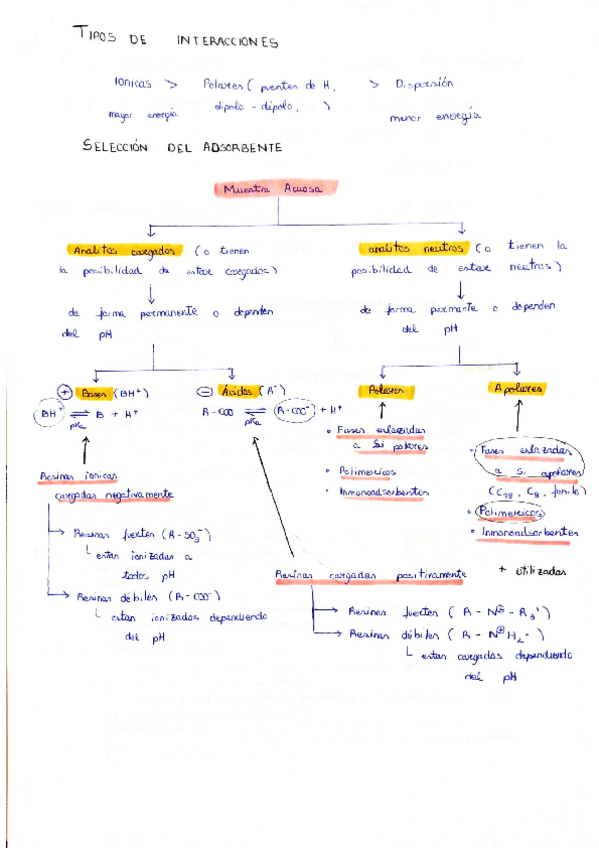 TIPOS DE INTERACCIONES
Ionicas > Polares ( puentes de H, > Dispersión
mayor energía dipolo - dipolo, ...) menor energía
SELECCIÓN DEL ADSORBENTE
Muestra Acuosa
Analitos cargados (o tienen
la posibilidad de estar cargados)
analitos neutros (o tienen la
posibilidad de estar neutros)
de forma permanente o dependen
del pH
de forma permante o dependen
del pH
+ Bases (BH+)
BH+ ⇌ B + H+
pKa
- Ácidos (A-)
R-COO ⇌ R-COO- + H+
pKa
Polares
• Fases enlazadas
a Si polares
• Polimericos
• Inmunoadsorbentes
Apolares
• Fases enlazadas
a Si apolares
(C18, C8, fenilo)
• Polimericos
• Inmonoadsorbentes
+ utilizadas
Resinas ionicas
cargadas negativamente
→ Resinas fuertes (R-SO3-)
└ estan ionizadas a
todos pH
→ Resinas débiles (R-COO-)
└ estan ionizadas dependiendo
del pH
Resinas cargadas positivamente
→ Resinas fuertes (R-N⊕-R3+)
→ Resinas débiles (R-N⊕H2-)
└ estan cargadas dependiendo
del pH